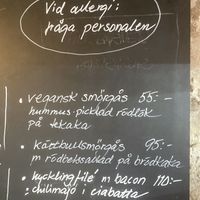 Vid allergi:
fråga personalen
• vegansk smörgås 55:-
hummus-picklad rödlök
på tekaka
• köttbullsmörgås 95:-
m rödbetssallad på brödkaka
• kycklingfilé m bacon 110:-
chilimajo i ciabatta